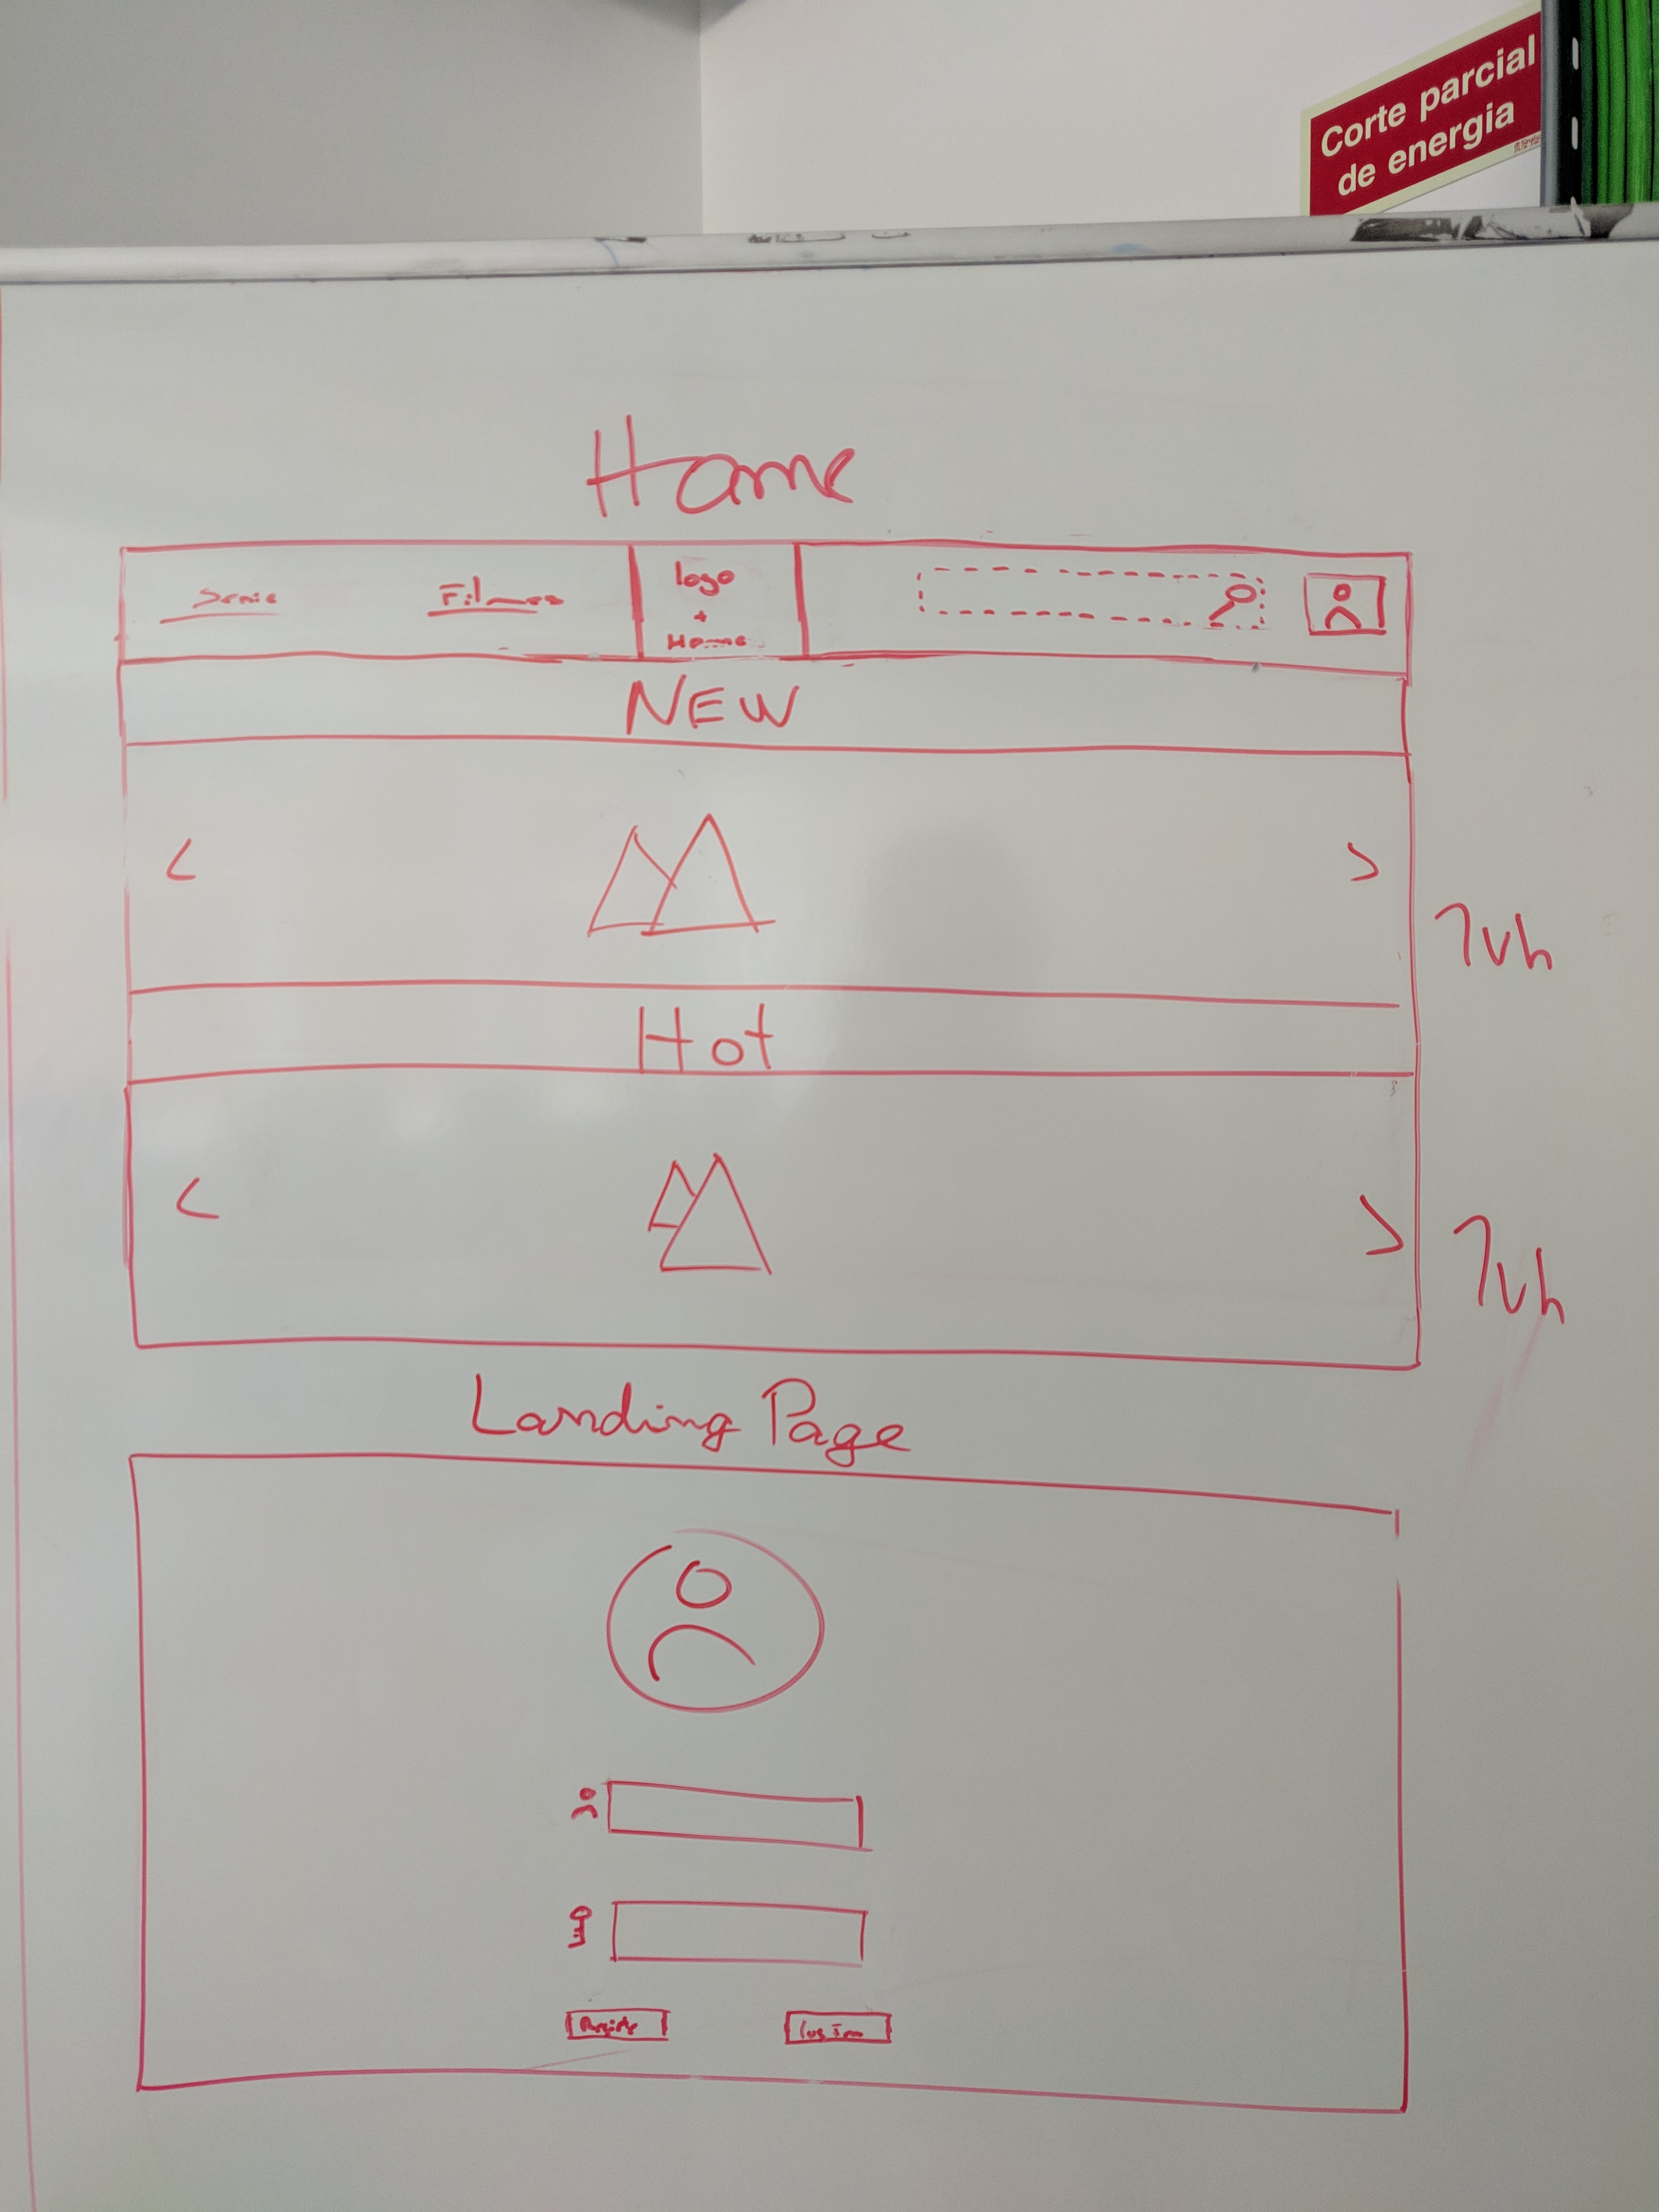 Corte parcial
de energia
Home
Serie
Filmes
logo
+
Home
NEW
7vh
Hot
7vh
Landing Page
Log In